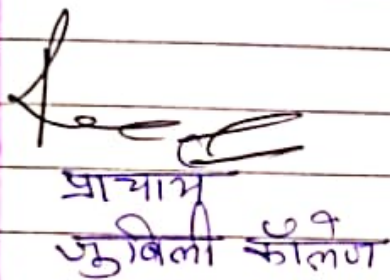 प्राचार्य
जुबिली कॉलेज